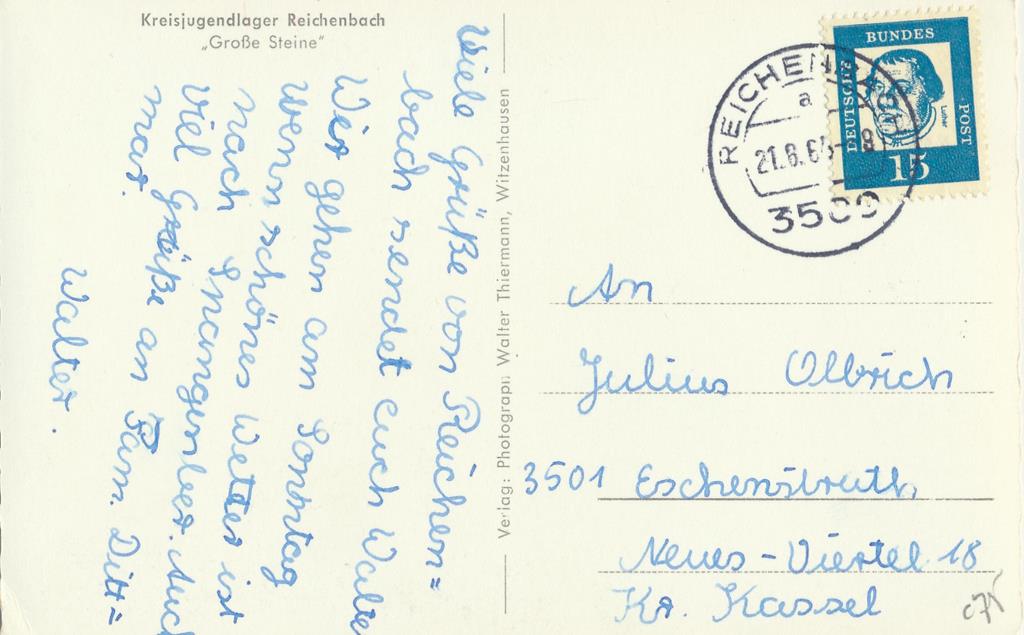 Kreisjugendlager Reichenbach
„Große Steine"
Viele Grüße von Reichen=
bach sendet euch Walte
Wir gehen am Sonntag
wenn schönes Wetter ist
nach
Viel Grüße an Fam. Ditt=
mar.
Walter.
Verlag: Photograph Walter Thiermann, Witzenhausen
DEUTSCHE
BUNDES
POST
Luther
15
REICHENBACH
a
3509
An
Julius Olbrich
3501 Eschenstruth
Neues-Viertel 18
Kr. Kassel